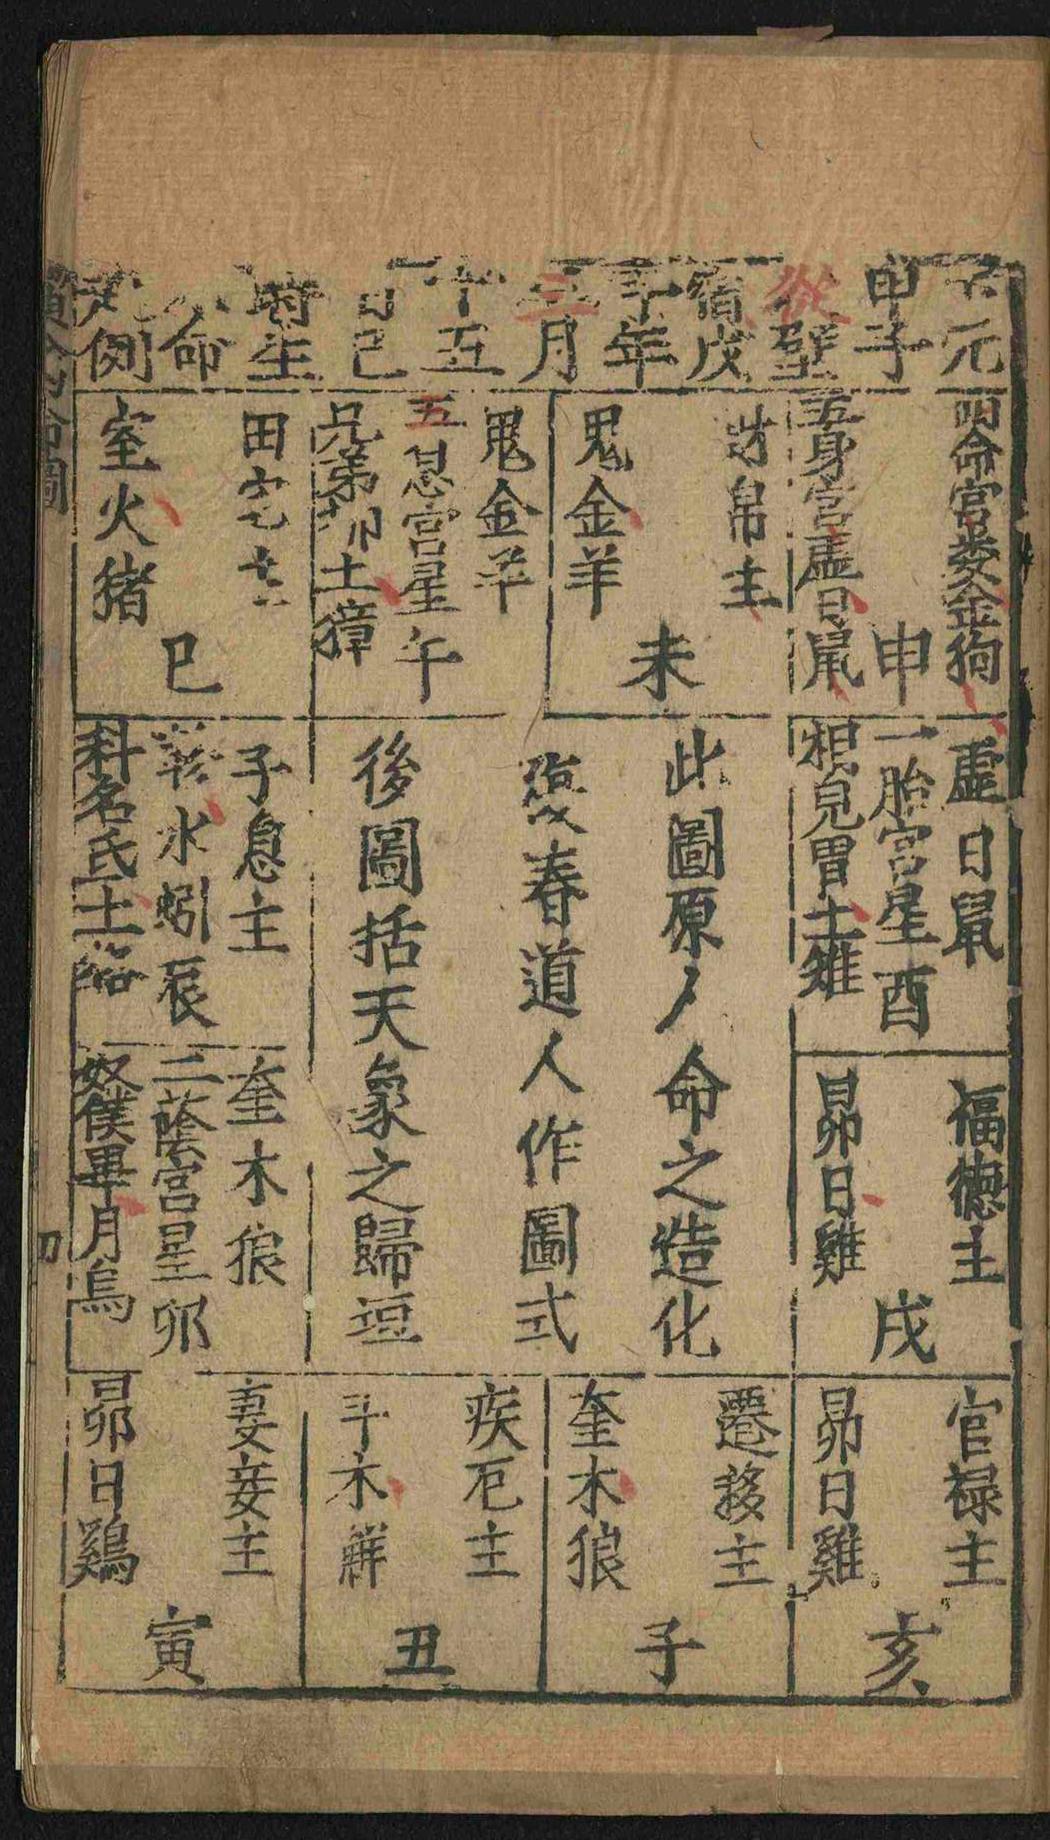 下元
申子
從壁
宿戊
午年
三月
十五
日己
時生
人命
式例
明命宮婁金狗
申
五身宮虛日鼠
財帛主
未
鬼金羊
鬼金羊
五恩宮星午
兄弟柳土獐
田宅主
巳
室火猪
虛日鼠
一胎宮星酉
相皃胃土雉
此圖原人命之造化
春道人作圖式
後圖括天象之歸垣
子息主
水蚓辰
科名氏土貉
福德主
戌
昴日雞
奎木狼
二蔭宮星卯
奴僕畢月烏
官禄主
亥
昴日雞
遷移主
子
奎木狼
疾厄主
丑
斗木觧
妻妾主
寅
昴日鷄